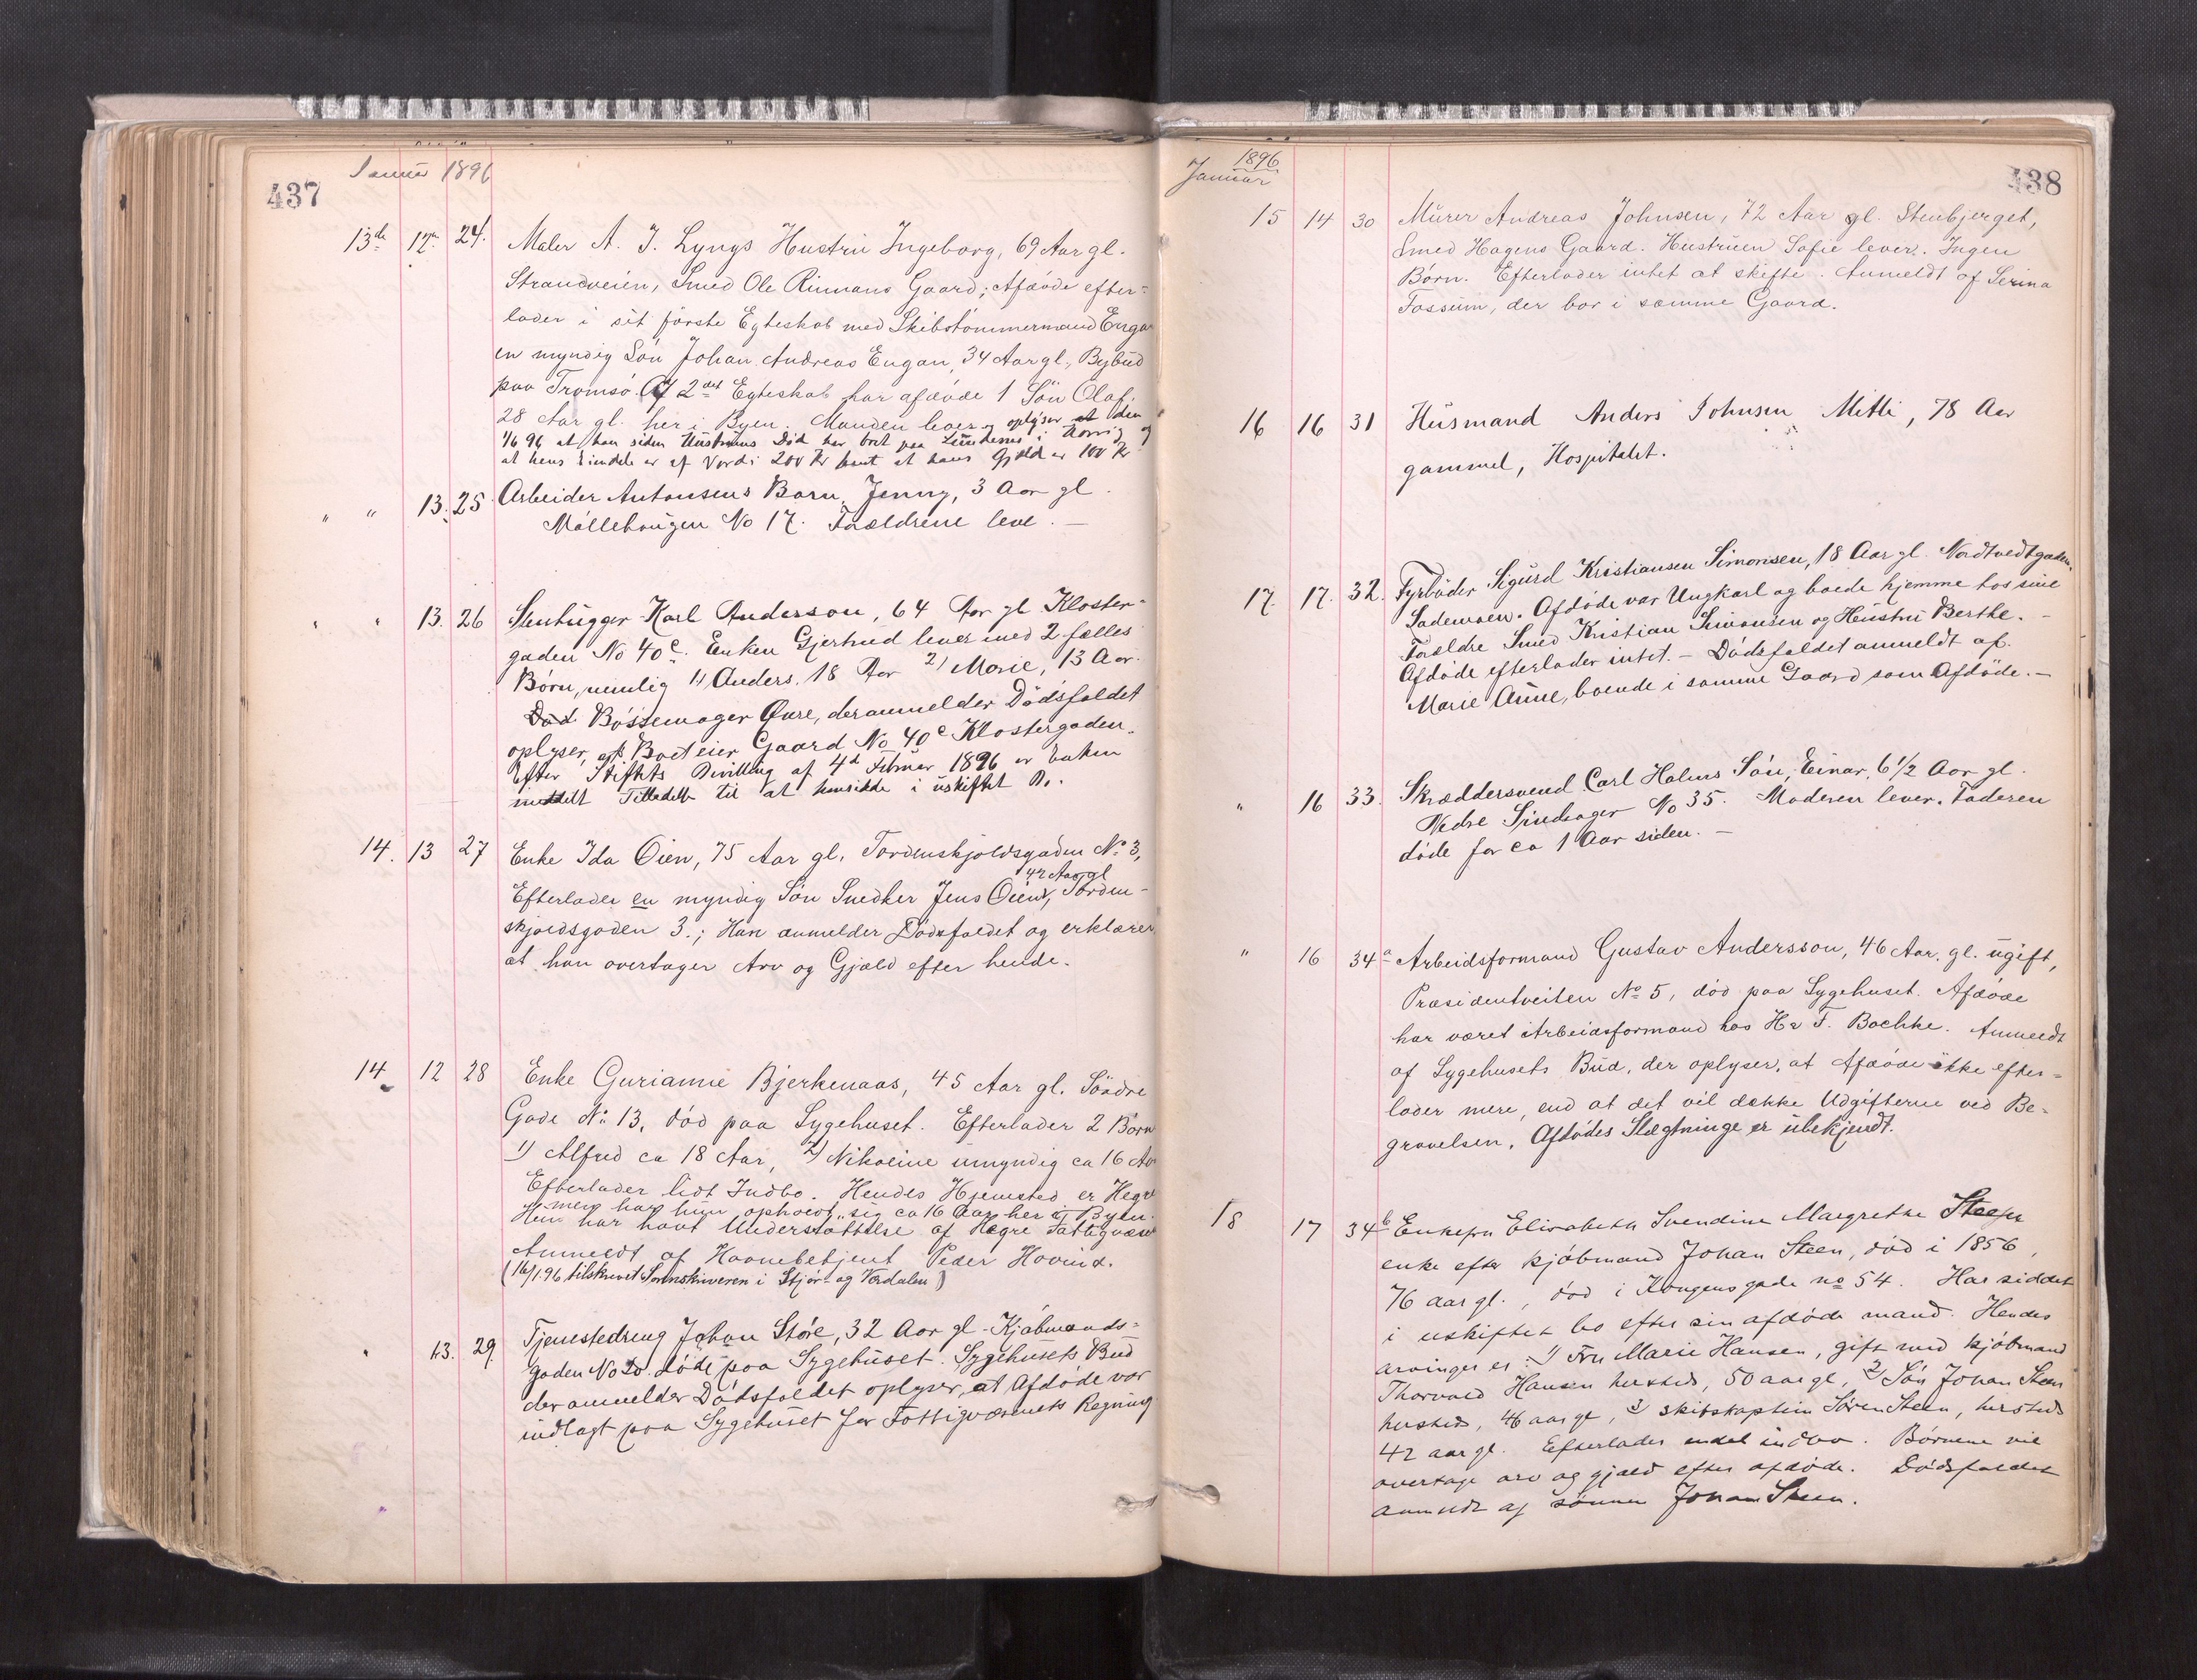 437
Januar 1896
13de 12te 24. Maler A. J. Lyngs Hustru Ingeborg, 69 Aar gl.
Strandveien, Smed Ole Rinnans Gaard; Afdøde efter-
lader i sit første Egteskab med Skibstømmermand Engan
en myndig Søn Johan Andreas Engan, 34 Aar gl., Bybud
paa Tromsø. Af 2det Egteskab har afdøde 1 Søn Olaf,
28 Aar gl. her i Byen. Manden lever og oplyser at den
1/6 96 at han siden Hustruens Død har boet paa i og
at hans Eiendele er af Værdi 200 Kr samt at hans Gjæld er 100 Kr
" " 13. 25. Arbeider Antonsens Barn, Jenny, 3 Aar gl.
Møllehaugen No 17. Forældrene leve. —
" " 13. 26 Stenhugger Karl Anderson, 64 Aar gl Kloster-
gaden No 40c. Enken Gjertrud lever med 2 fælles
Børn, nemlig 1) Anders. 18 Aar 2) Marie, 13 Aar.
Død Bøssemager Øvre, der anmelder Dødsfaldet
oplyser, at Boet eier Gaard No 40c Klostergaden.
Efter Stiftets Bevilling af 4de Februar 1896 er Enken
meddelt Tilladelse til at hensidde i uskiftet Bo.
14. 13 27 Enke Ida Øien, 75 Aar gl. Tordenskjoldsgaden No 3,
42 Aar gl
Efterlader en myndig Søn Snedker Jens Øien, Torden-
skjoldsgaden 3.; Han anmelder Dødsfaldet og erklærer
at han overtager Arv og Gjæld efter hende.
14 12 28 Enke Gurianne Bjerkenaas, 45 Aar gl. Søndre
Gade No 13, død paa Sygehuset. Efterlader 2 Børn
1) Alfred ca 18 Aar, 2) Nikoline umyndig ca 16 Aar
Efterlader lidt Indbo. Hendes Hjemsted er Hegre
men har hun opholdt sig ca 16 Aar her i Byen.
Hun har havt Understøttelse af Hegre Fattigvæsen
Anmeldt af Havnebetjent Peder Hovind.
(16/1 96 tilskrevet Sorenskriveren i Stjør- og Værdalen)
" 13. 29. Tjenestedreng Johan Støre, 32 Aar gl. Kjøbmands-
gaden No 20. døde paa Sygehuset. Sygehusets Bud
der anmelder Dødsfaldet oplyser, at Afdøde var
indlagt paa Sygehuset for Fattigvæsenets Regning
438
1896
Januar
15 14 30 Murer Andreas Johnsen, 72 Aar gl. Stenbjerget,
Smed Hagens Gaard. Hustruen Sofie lever. Ingen
Børn. Efterlader intet at skifte. Anmeldt af Serina
Fossum, der bor i samme Gaard.
16 16 31 Husmand Anders Johnsen Mitli, 78 Aar
gammel, Hospitalet.
17. 17. 32. Fyrbøder Sigurd Kristiansen Simonsen, 18 Aar gl. Nordtvedtgaden,
Lademoen. Afdøde var Ungkarl og boede hjemme hos sine
Forældre Smed Kristian Simonsen og Hustru Berthe. —
Afdøde efterlader intet. — Dødsfaldet anmeldt af
Marie Aune, boende i samme Gaard som Afdøde. —
" 16 33. Skræddersvend Carl Holms Søn, Einar, 6 1/2 Aar gl.
Nedre Singsager No 35. Moderen lever. Faderen
døde for ca 1 Aar siden. —
" 16 34a Arbeidsformand Gustav Andersson, 46 Aar. gl. ugift,
Præsidentveiten No 5, død paa Sygehuset. Afdøde
har været Arbeidsformand hos Hr F. Bachke. Anmeldt
af Sygehusets Bud, der oplyser, at Afdøde ikke efter-
lader mere, end at det vil dække Udgifterne ved Be-
gravelsen. Afdødes Slægtninge er ubekjendt.
18 17 34b Enkefru Elisabeth Svendine Margrethe Steen
enke efter kjøbmand Johan Steen, død i 1856,
76 aar gl., død i Kongens gade no 54. Har siddet
i uskiftet bo efter sin afdøde mand. Hendes
arvinger er: 1) Fru Marie Hansen, gift med kjøbmand
Thorvald Hansen hersteds, 50 aar gl, 2) Søn Johan Steen
hersteds, 46 aar gl, 3) skibskaptein Søren Steen, hersteds
42 aar gl. Efterlader endel indbo. Børnene vil
overtage arv og gjæld efter afdøde. Dødsfaldet
anmeldt af sønnen Johan Steen.